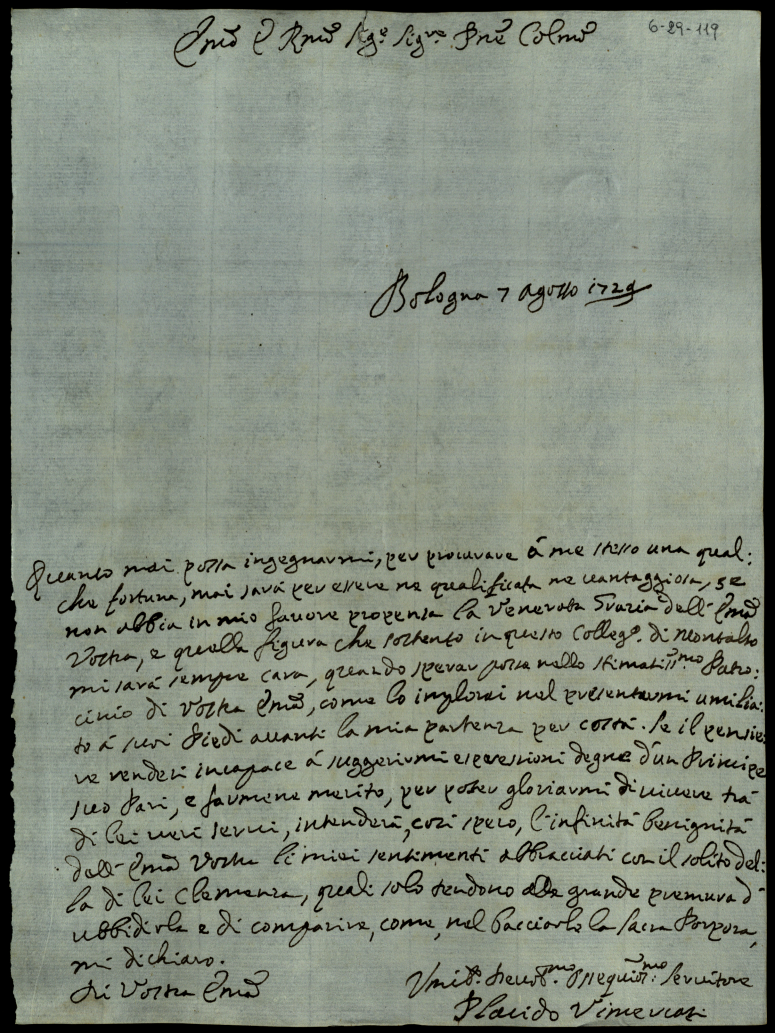 6-29-119
Em̃o e Rm̃o Sig.e Sig.re Pñe Colm̃o
Bologna 7 Agosto 1729
Quanto mai possa ingegnarmi, per procurare á me stesso una qual:
che fortuna, mai sará per essere ne qualificata ne vantaggiosa, se
non abbia in mio favore propensa la Venerata Grazia dell' Em̃a
Vostra, e quella figura che sostento in questo Colleg.o di Montalto
mi sará sempre cara, quando sperar possa nello stimatiss.mo Patro:
cinio di Vostra Em̃a, come lo implorai nel presentarmi umilia:
to á suoi Piedi avanti la mia partenza per costá. Se il pensie
re rendesi incapace á suggerirmi espressioni degne d'un Principe
suo Pari, e farmene merito, per poter gloriarmi di vivere trá
di lei veri servi, intenderá, cosi spero, l'infinitá benignitá
dell' Em̃a Vostra li miei sentimenti abbracciati con il solito del:
la di lei Clemenza, quali solo tendono alla grande premura d'
ubbidirla e di comparire, come, nel bacciarle la Sacra Porpora,
mi dichiaro.
Di Vostra Em̃a
Umil.o Devot.mo Ossequios.mo Servitore
Placido Vimercati